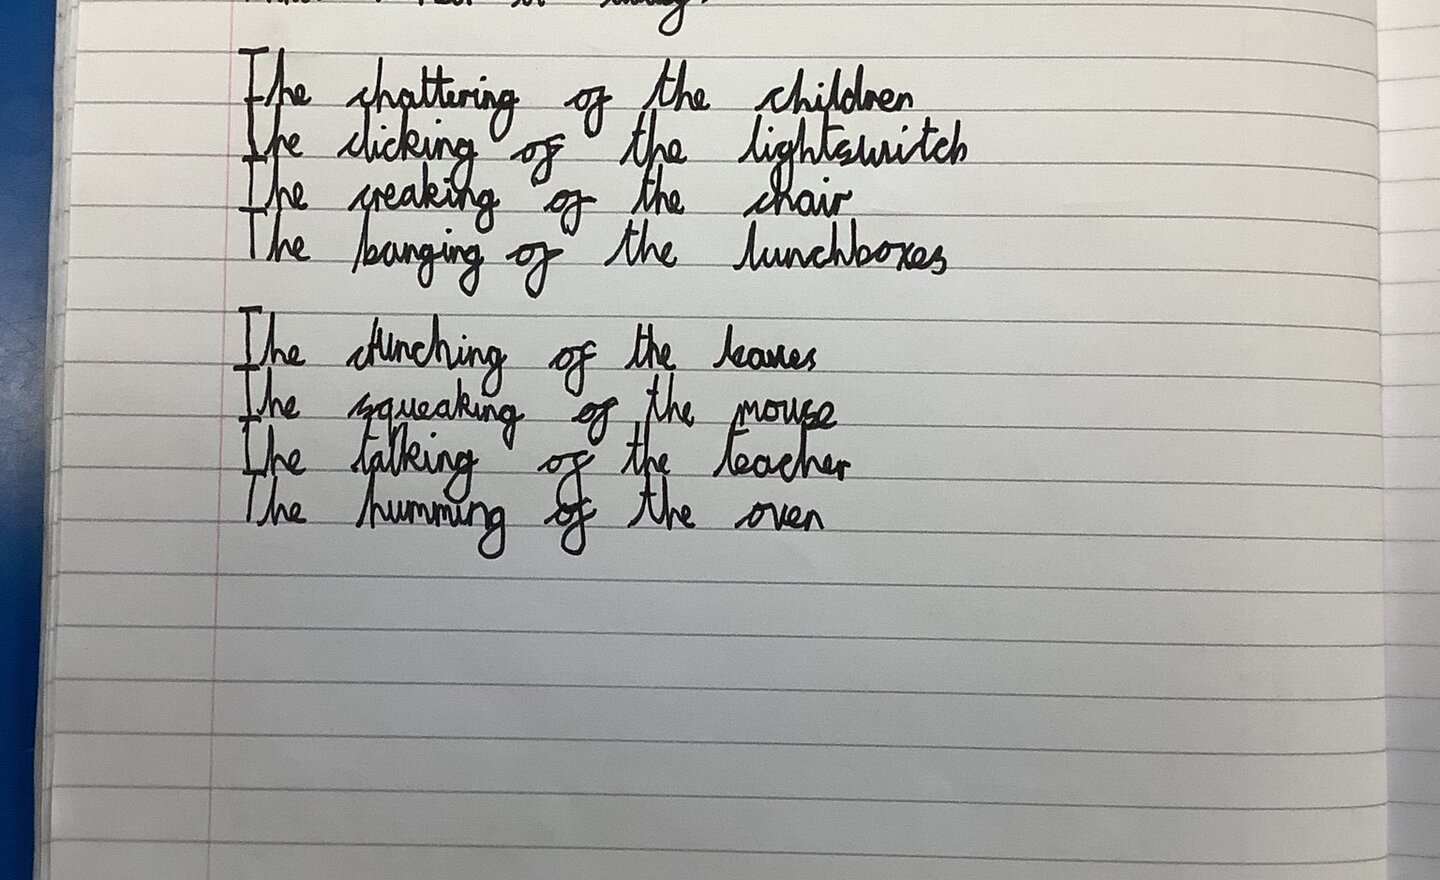 The chattering of the children
The clicking of the lightswitch
The creaking of the chair
The banging of the lunchboxes
The crunching of the leaves
The squeaking of the mouse
The talking of the teacher
The humming of the oven